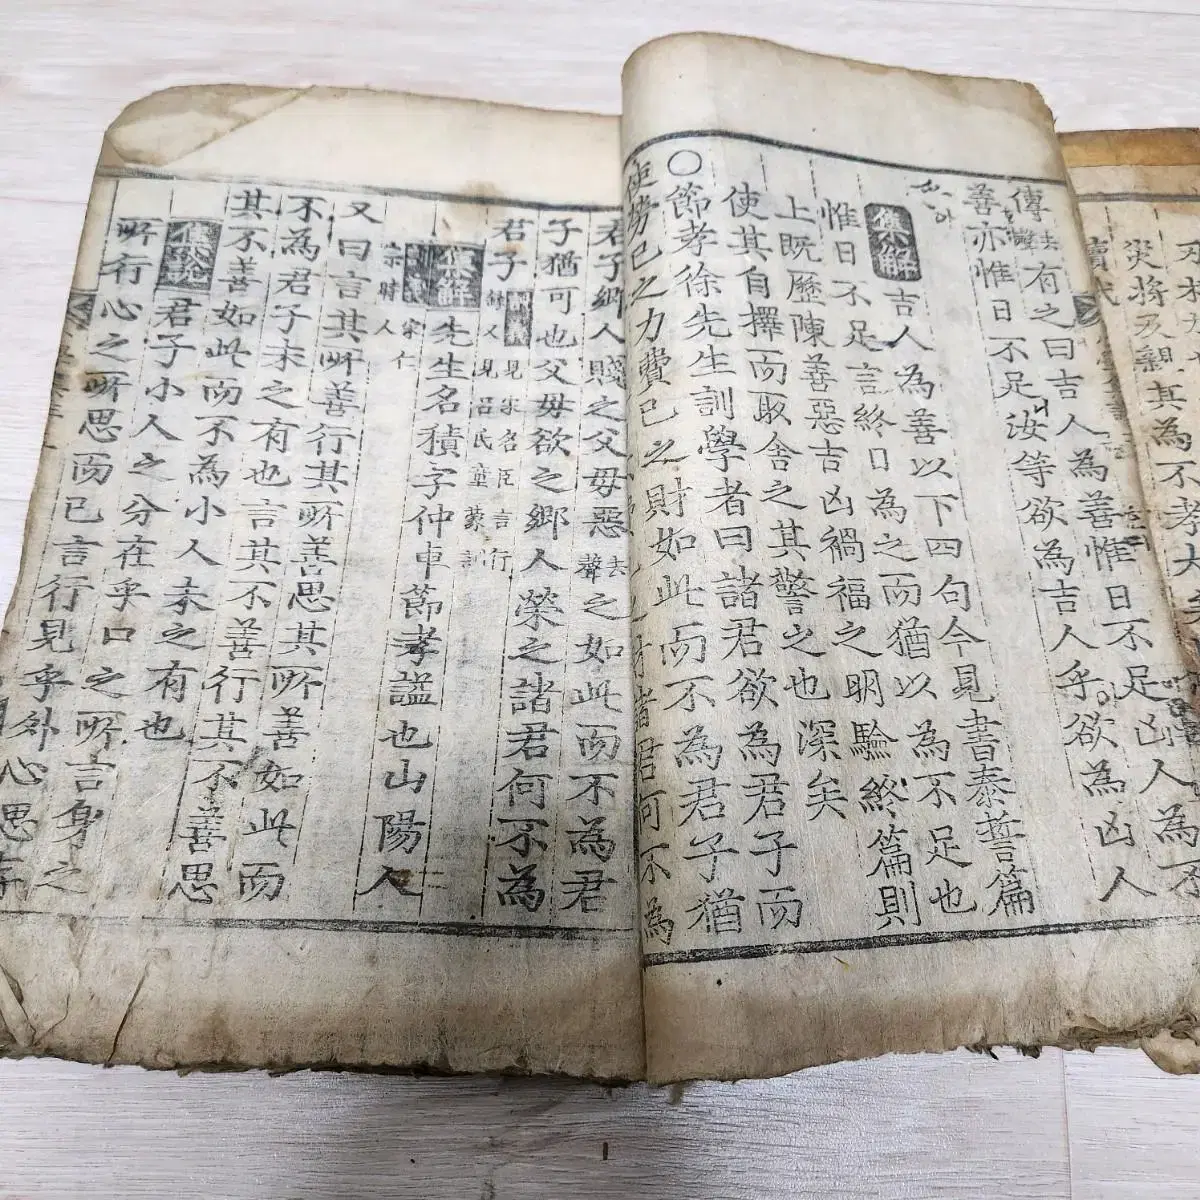 災將及親其為不孝大
傳去聲有之曰吉人為善惟日不足凶人為不
善亦惟日不足汝等欲為吉人乎欲為凶人
集解吉人為善以下四句今見書泰誓篇
惟日不足言終日為之而猶以為不足也
上既歷陳善惡吉凶禍福之明驗終篇則
使其自擇而取舍之其警之也深矣
○節孝徐先生訓學者曰諸君欲為君子而
使勞己之力費己之財如此而不為君子猶
己之財諸君何不為
君子鄉人賤之父母惡去聲之如此而不為君
子猶可也父母欲之鄉人榮之諸君何不為
君子見宋名臣言行錄又見呂氏童蒙訓
集解先生名積字仲車節孝謚也山陽人
宋仁宗時人
又曰言其所善行其所善思其所善如此而
不為君子未之有也言其不善行其不善思
其不善如此而不為小人未之有也
集說君子小人之分在乎口之所言身之
所行心之所思而已言行見乎外心思存